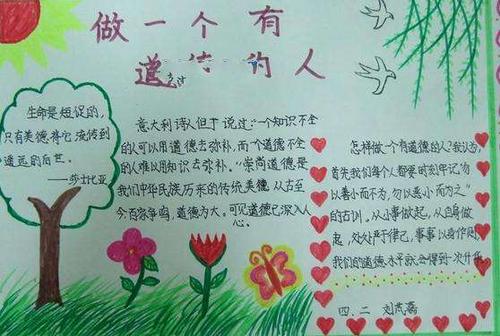 做一个有
道德的人
生命是短促的，
只有美德将它流传到
遥远的后世。
——莎士比亚
意大利诗人但丁说过：一个知识不全
的人可以用道德去弥补，而一个道德不全
的人难以用知识去弥补。"崇尚道德是
我们中华民族历来的传统美德，从古至
今百家争鸣，道德为大，可见道德已深入人
心。
怎样做一个有道德的人？我认为，
首先我们每个人都要时刻牢记"勿
以善小而不为，勿以恶小而为之"
的古训。从小事做起，从自身做
起，处处严于律己，事事以身作则，
我们的道德水平就会得到一次升华
四、二 刘芮蕊